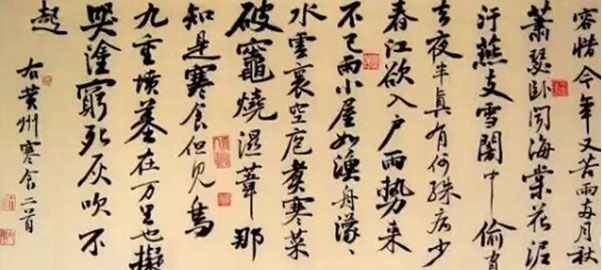 容惜今年又苦雨兩月秋
蕭瑟卧聞海棠花泥
汙燕支雪闇中偷負
去夜半真有何殊病少
春江欲入户雨勢來
不已雨小屋如漁舟濛、
水雲裏空庖煑寒菜
破竈燒濕葦那
知是寒食但見烏
九重墳墓在万里也擬
哭塗窮死灰吹不
起
右黄州寒食二首